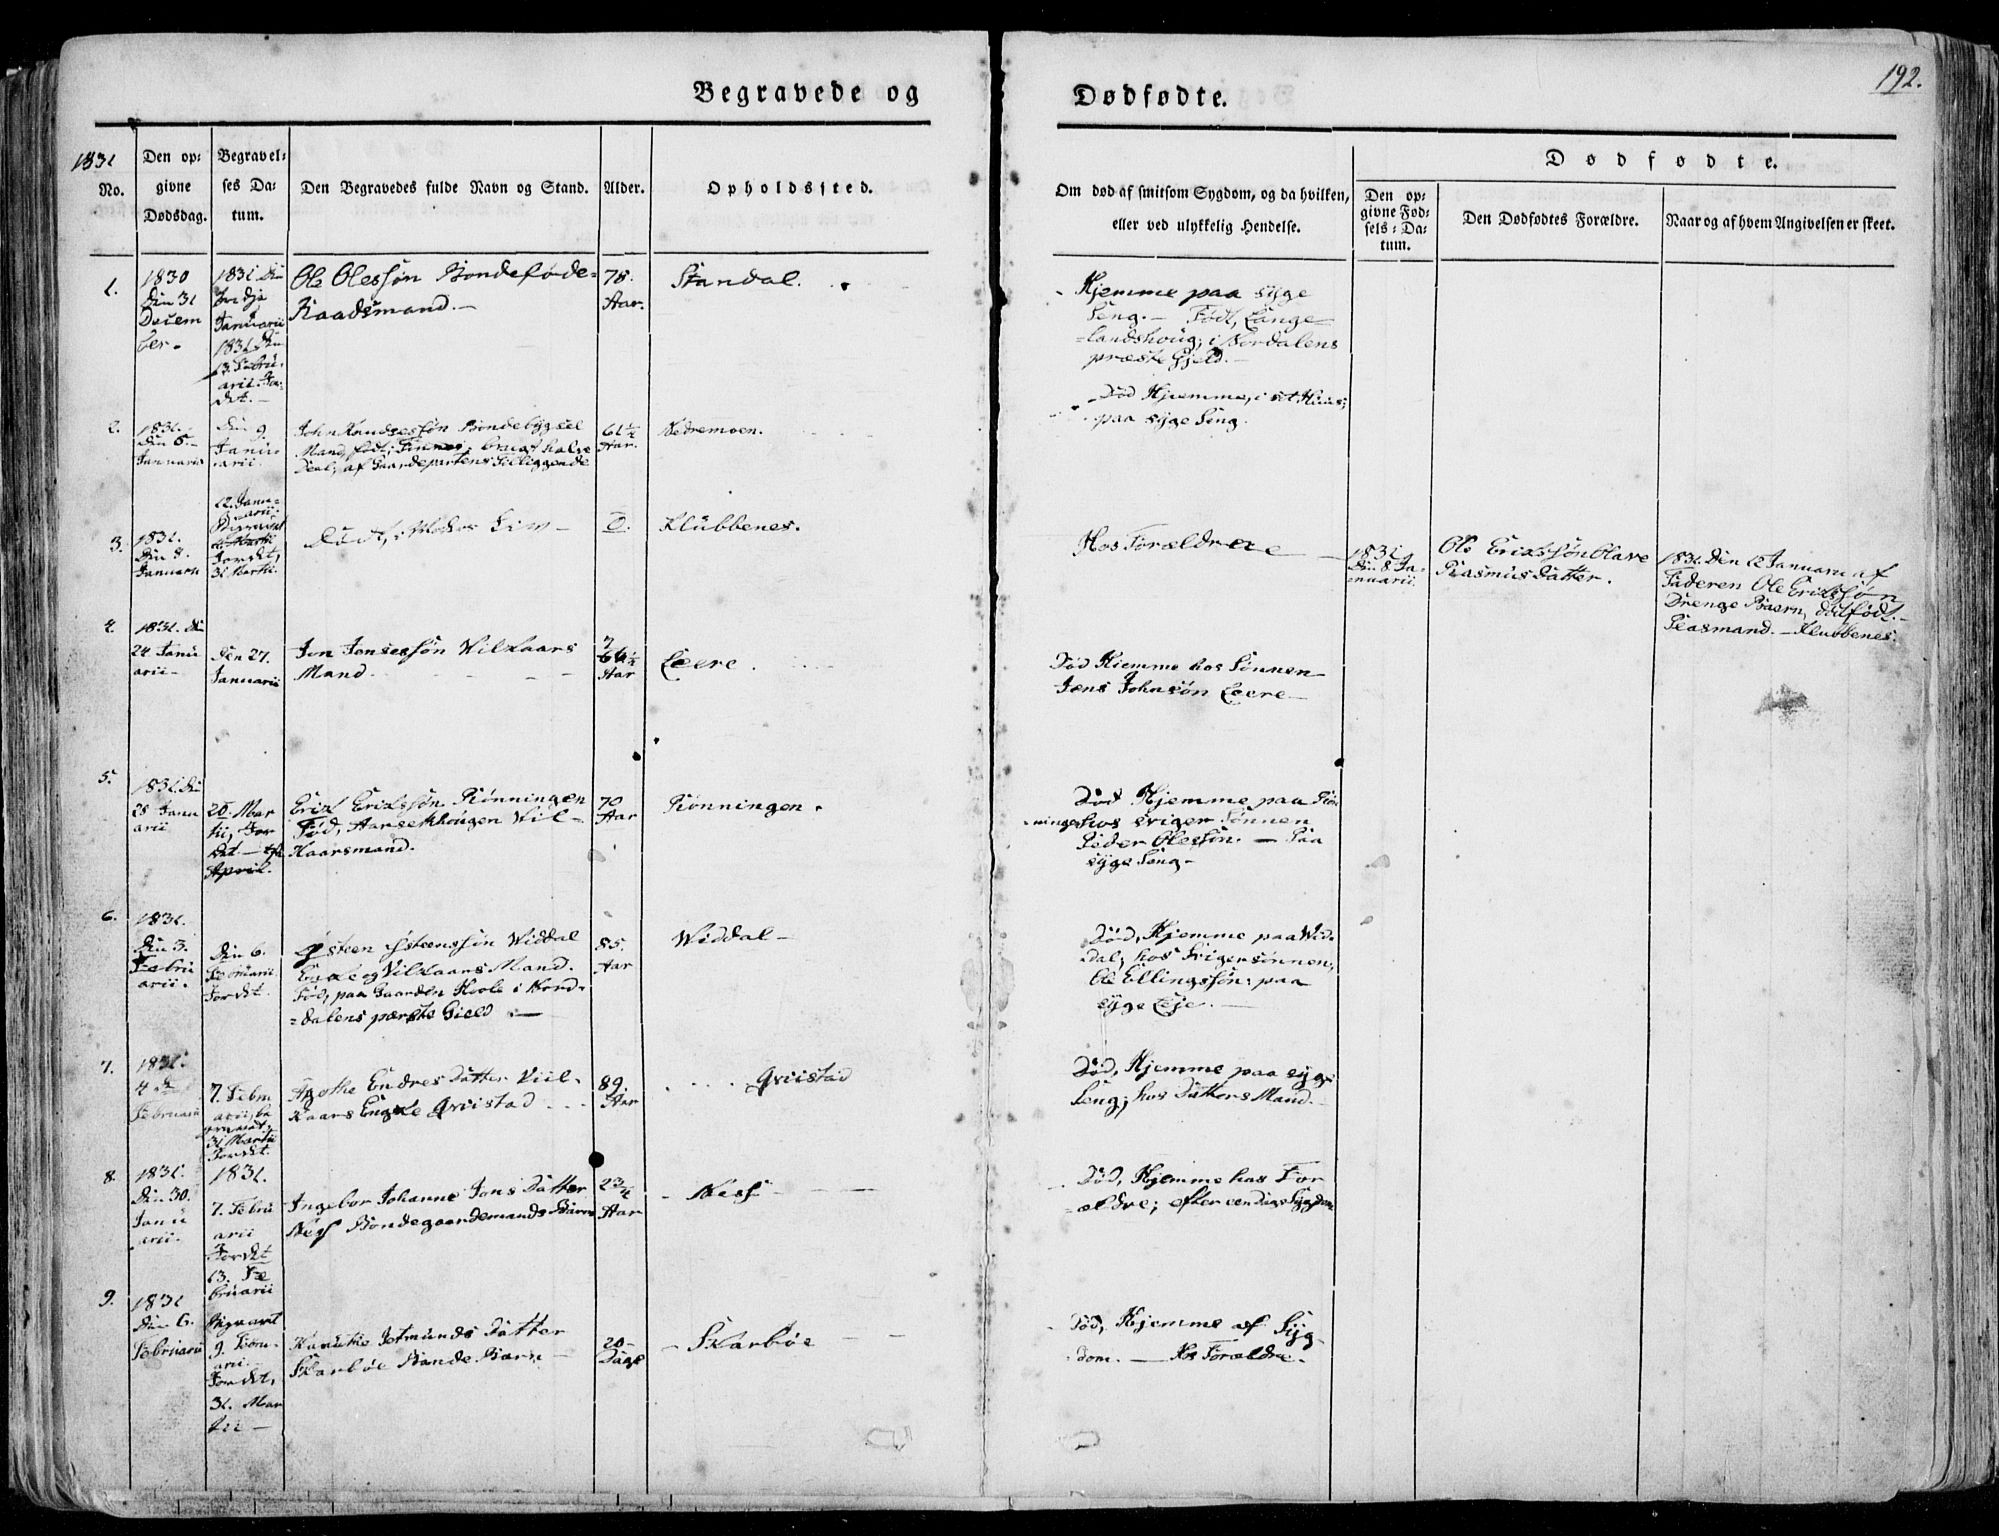 Begravede og
Dødfødte.
192.
1831
No.
Den op-
givne
Dødsdag.
Begravel-
ses Da-
tum.
Den Begravedes fulde Navn og Stand.
Alder.
Opholdssted.
Om død af smitsom Sygdom, og da hvilken,
eller ved ulykkelig Hendelse.
Dødfødte.
Den op-
givne Fød-
sels-Da-
tum.
Den Dødfødtes Forældre.
Naar og af hvem Angivelsen er skeet.
1.
1830
Den 31
Decem
ber.
1831 Den
tredje
Januarii
1831 Den
13 Febru-
arii. Jor-
det.
Ole Olessøn Bondeføde-
Raadsmand.
78.
Aar.
Standal.
Hjemme paa syge
Seng. Født, Lange-
landshoug; i Nordalens
præste Gjeld.
2.
1831.
Den 5.
Januarii
Den 9.
Janu-
arii.
John Knudsessøn Bondebygsel
Mand, født;
61½
Aar.
Nedremoen.
Død Hjemme, i sit Huus;
paa syge Seng.
3.
1831.
Den 8.
Januarii
12 Janu-
arii.
Jordet,
31 Martii.
Født, i Moders Liv
0.
Klubbenes.
Hos Forældrene
1831
Den 8. Ja-
nuarii
Ole Erikssøn Olave
Rasmusdatter.
1831. Den 12 Januarii af
Faderen Ole Erikssøn
Drenge Baern, dødfødt.
Plasmand. Klubbenes.
4.
1831. Den
24 Janu
arii
Den 27.
Januarii
Jon Jonsessøn Vilkaars
Mand.
Aar
Leere.
Død Hiemme hos Sønnen
Jens Johnsøn Leere
5.
1831. Den
28 Janu
arii
20. Mar
tii, Jor
det
April.
Erik Erikssøn Rønningen
Fød, Aarsethhougen Vil-
kaarsmand.
70
Aar
Rønningen.
Død Hjemme paa Røn
ningen hos sviger Sønnen
Peder Olessøn. Paa
syge Seng
6.
1831.
Den 3.
Febru
arii.
Den 6.
Februarii
Jordet.
Østeen Østeenssøn Widdal
Enke og Vilkaars Mand.
Fød, paa Gaarden Hoole i Nord-
dalens præste Gield.
85.
Aar
Widdal
Død, Hjemme paa Wid-
dal; hos Svigersønnen,
Ole Ellingssøn; paa
syge Leje.
7.
1831.
4 de
Februarii
7. Febru
arii, be
gravet,
31 Martii
Jordet.
Agothe Endres Datter Viil-
kaars Enke Qviistad
89.
Aar
Qviistad
Død, Hjemme paa syge
Seng; hos Datters Mand.
8.
1831.
Den 30.
Janu
arii.
1831.
7. Febru
arii
Jordet
13. Fe
bruarii
Ingebor Johanne Jons Datter
Ness Bondegaardemands Barn
2¾
Aar
Ness
Død, Hjemme hos For
ældre; efter een Dags Sygdom
9.
1831
Den 6.
Februarii
Begravet
9. Febru-
arii.
Jordet,
31. Mar
tii
Jetmunds Datter
Skarbøe Bonde Barn
20
Dage
Skarbøe
Død, Hjemme af Syg-
dom. Hos Forældre.